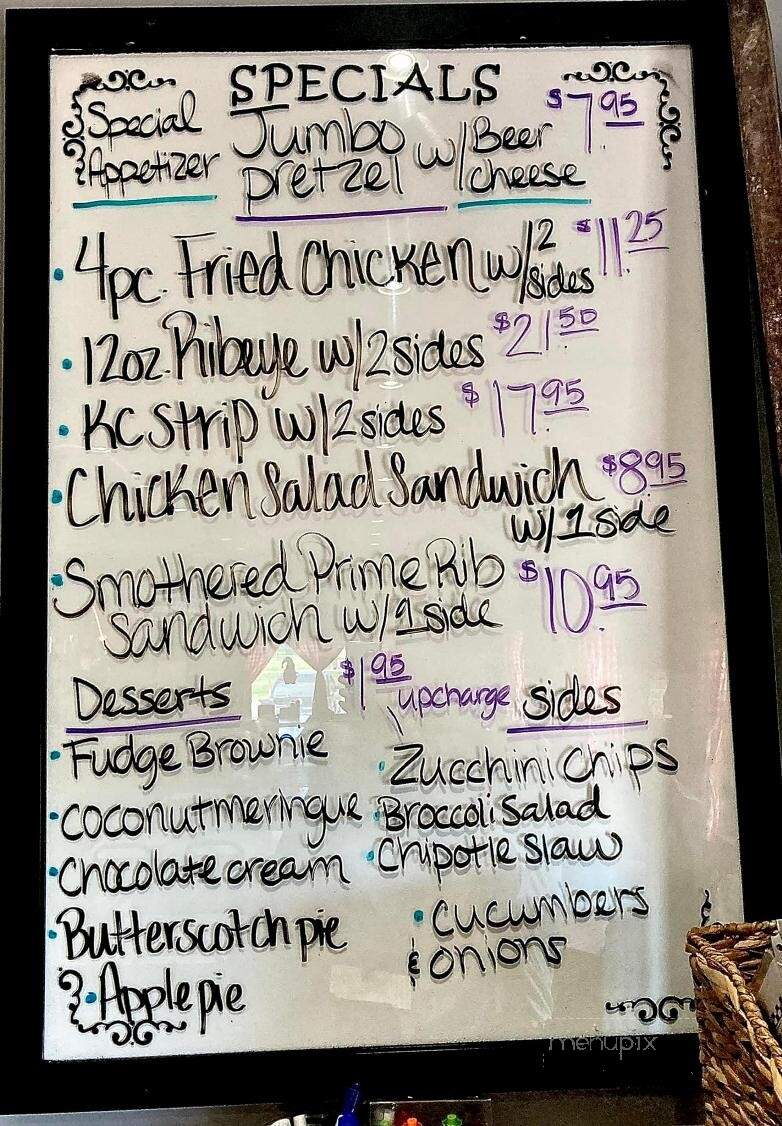 SPECIALS
Special Appetizer
Jumbo pretzel w/ Beer cheese $7.95
• 4pc. Fried Chicken w/2 sides $11.25
• 12oz. Ribeye w/2 sides $21.50
• KC Strip w/2 sides $17.95
• Chicken Salad Sandwich $8.95
w/1 side
• Smothered Prime Rib $10.95
Sandwich w/1 side
Desserts
• Fudge Brownie
• coconut meringue
• Chocolate cream
• Butterscotch pie
• Apple pie
$1.95 upcharge
sides
• Zucchini Chips
• Broccoli Salad
• Chipotle slaw
• cucumbers
& onions
menupix